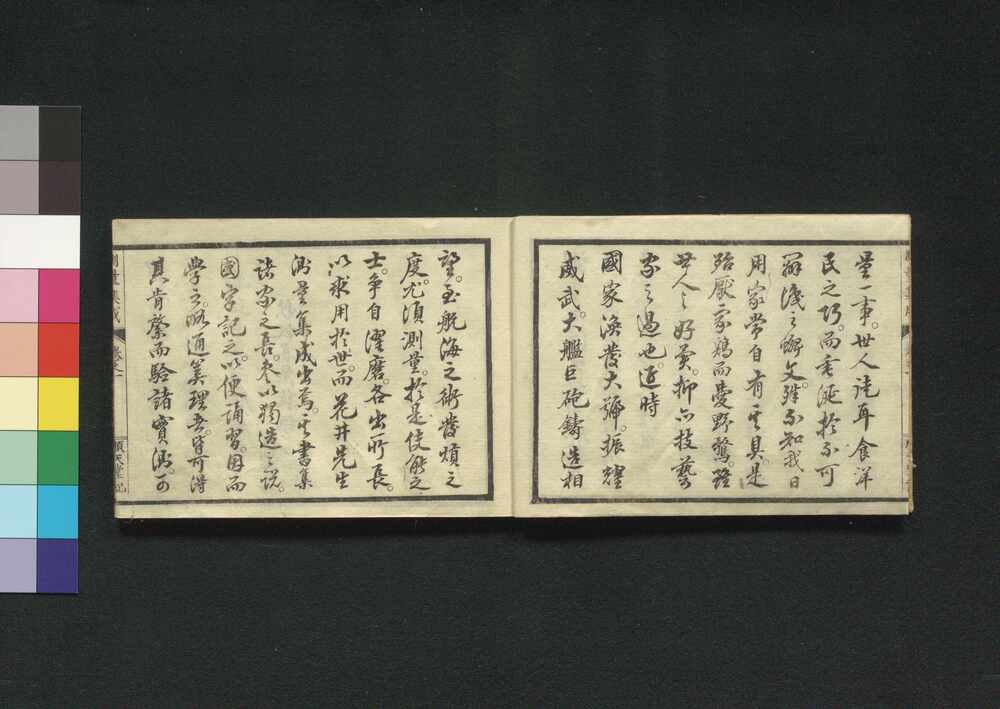 量一事。世人詫耳食洋
民之巧。而垂涎於不可
解淺之蠏文。殊不知我日
用家常自有其具。是
殆厭家鶏而愛野鶩。雖
世人之好異。抑亦技藝
家之過也。近時
國家渙發大號。振耀
威武。大艦巨砲鑄造相
望。至航海之術。發煩之
度。尤須測量。於是使能之
士。爭自濯磨。各出所長。
以求用於世。而花井先生
測量集成出焉。其書集
諸家之長。參以獨造之說。
國字記之。以便誦習。因而
學之。略通筭理者。皆可得
其肯綮而驗諸實測。可
測量集成
卷之一